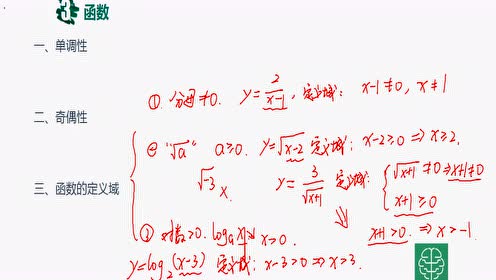 3 函数
一、单调性
二、奇偶性
三、函数的定义域
① 分母≠0. y=2/(x-1), 定义域: x-1≠0, x≠1
② "√a" a≥0. y=√(x-2) 定义域: x-2≥0 ⇒ x≥2.
√-3 × y=3/√(x+1) 定义域: { √(x+1)≠0 ⇒ x+1≠0
x+1≥0
⇓ x+1>0 ⇒ x>-1
③ 对数>0. logₐx x>0.
y=log₂(x-3) 定义域: x-3>0 ⇒ x>3.